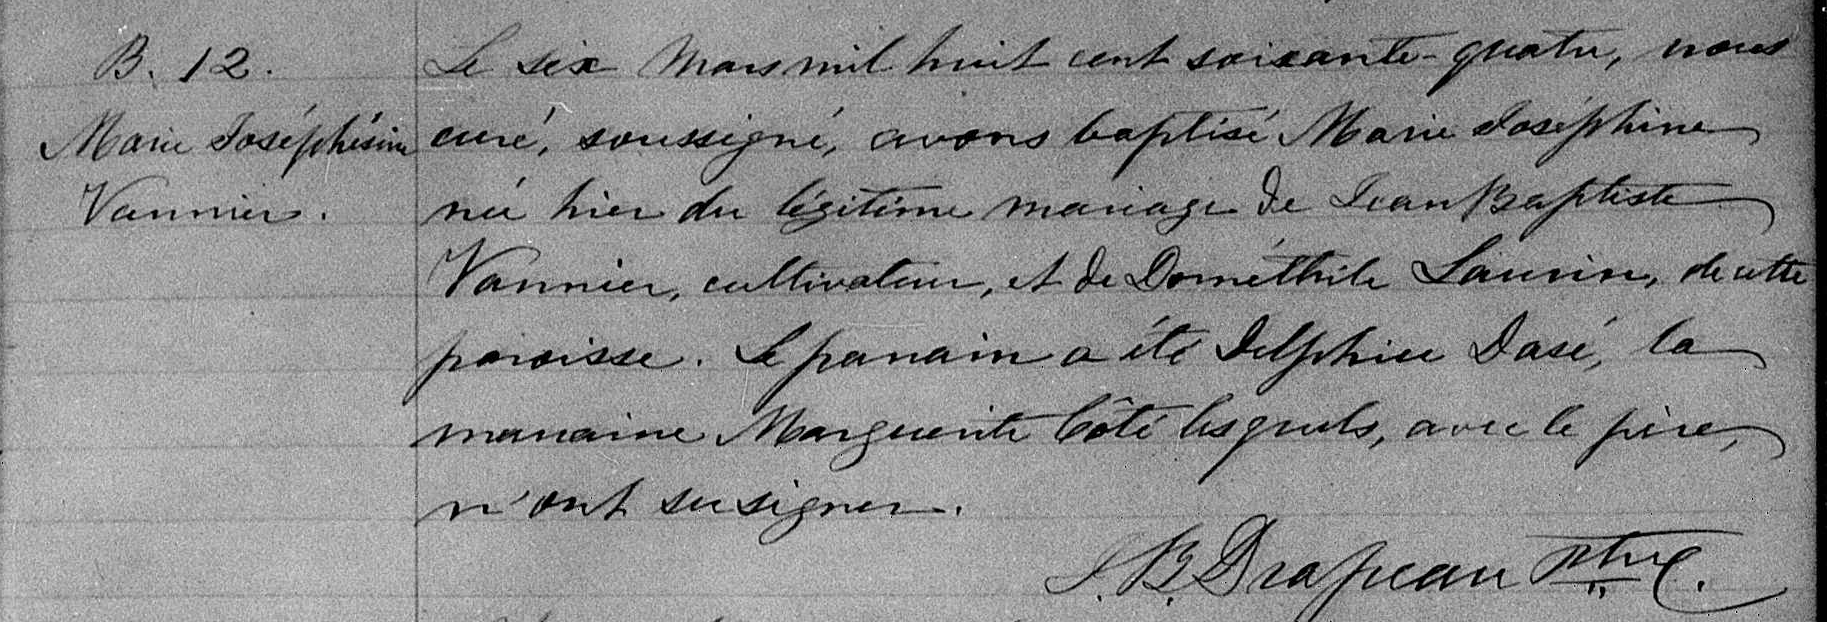 B. 12.
Marie Joséphésine
Vannier.
Le six Mars mil huit cent soixante-quatre, nous
curé, soussigné, avons baptisé Marie Joséphine
née hier du légitime mariage de Jean Baptiste
Vannier, cultivateur, et de Dométhile Laurin, de cette
paroisse. Le parrain a été Delphice Dasé, la
marraine Marguerite Côté lesquels, avec le père,
n'ont su signer.
J. B. Drapeau Ptre C.